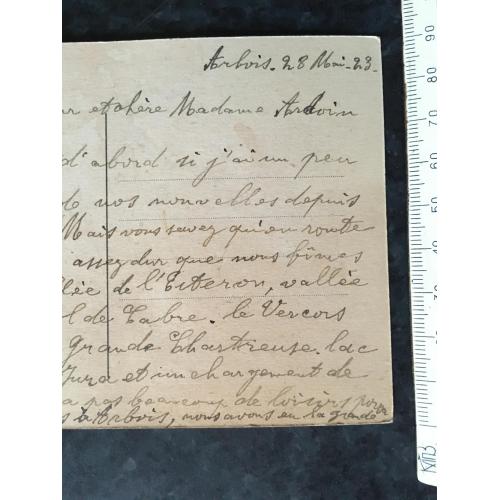 Arbois. 28 Mai-23.
ur et chère Madame Ardoin
d'abord si j'ai un peu
de nos nouvelles depuis
Mais vous savez qu'en route
assez dur que nous fîmes
llée de l'Esteron, vallée
l de Cabre. le Vercors
grande Chartreuse. lac
Jura et un chargement de
a pas beaucoup de loisirs pour
s à Arbois, nous avons eu la grande
90
80
70
60
50
40
30